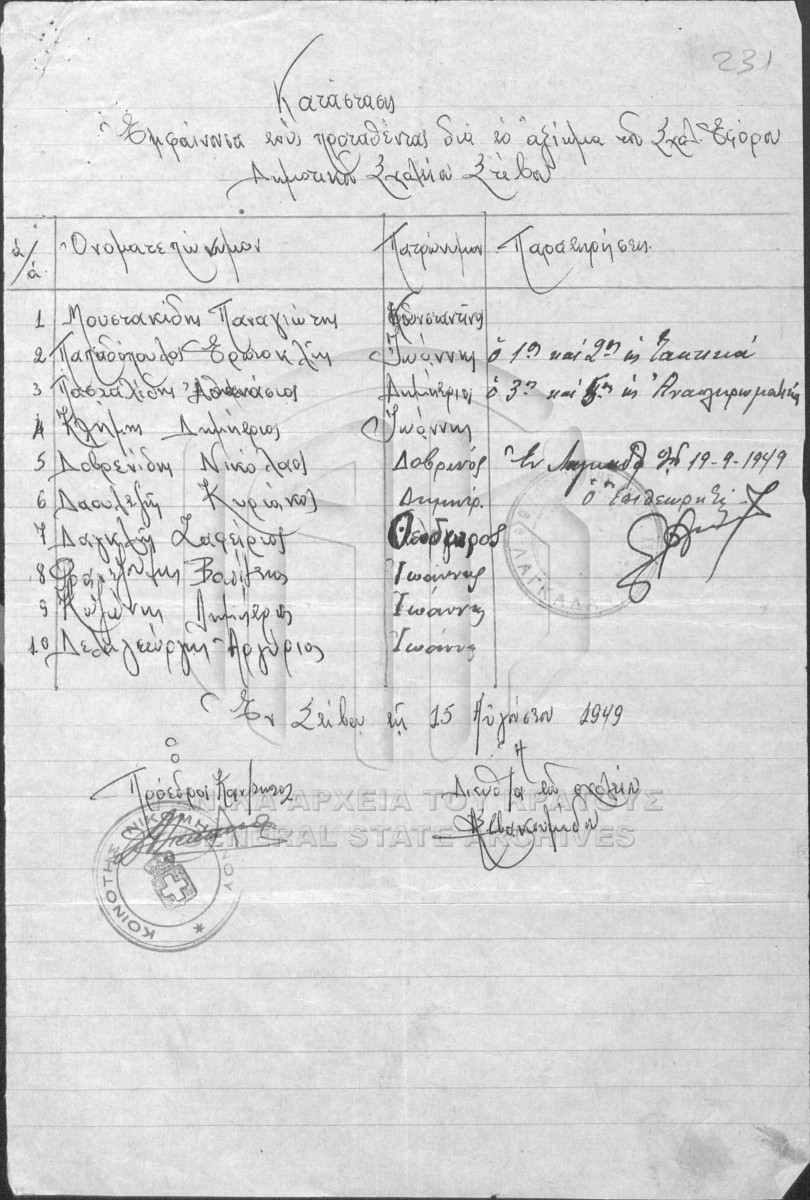 231
Κατάστασις
Ἐμφαίνουσα τούς προταθέντας διά τό ἀξίωμα τοῦ Σχολ. Ἐφόρου
Δημοτικοῦ Σχολείου Στίβου
ἀ/ἀ Ὀνοματεπώνυμον Πατρώνυμον Παρατηρήσεις.
1 Μουστακίδης Παναγιώτης Κωνσταντῖνος
2 Παπαδόπουλος Ἰωάννης ὁ 1ος καί 2ος ὡς Τακτικά
3 Πασχαλίδης Ἀθανάσιος Δημήτριος ὁ 3ος καί 5ος ὡς Ἀναπληρωματικά
4 Κλήμης Δημήτριος Ἰωάννης
5 Δοβρενίδης Νικόλαος Δοβρινός Ἐν Λαγκαδᾷ τῇ 19-9-1949
6 Κυριάκος Δημήτρ. ὁ Ἐπιθεωρητής
7 Δαγκλῆς Ζαφείριος Θεόδωρος
8 Ἰωάννης
9 Δημήτριος Ἰωάννης
10 Δεληγεώργης Ἀργύριος Ἰωάννης
ΛΑΓΚΑΔ
Ἐν Στίβῳ τῇ 15 Αὐγούστου 1949
Ὁ Ἡ
Πρόεδρος Κοινότητος Διευθ/τρια τοῦ σχολείου
ΓΕΝΙΚΑ ΑΡΧΕΙΑ ΤΟΥ ΚΡΑΤΟΥΣ
GENERAL STATE ARCHIVES
ΚΟΙΝΟΤΗΣ ΝΙΚΟΜΗΔΙΝΟΥ